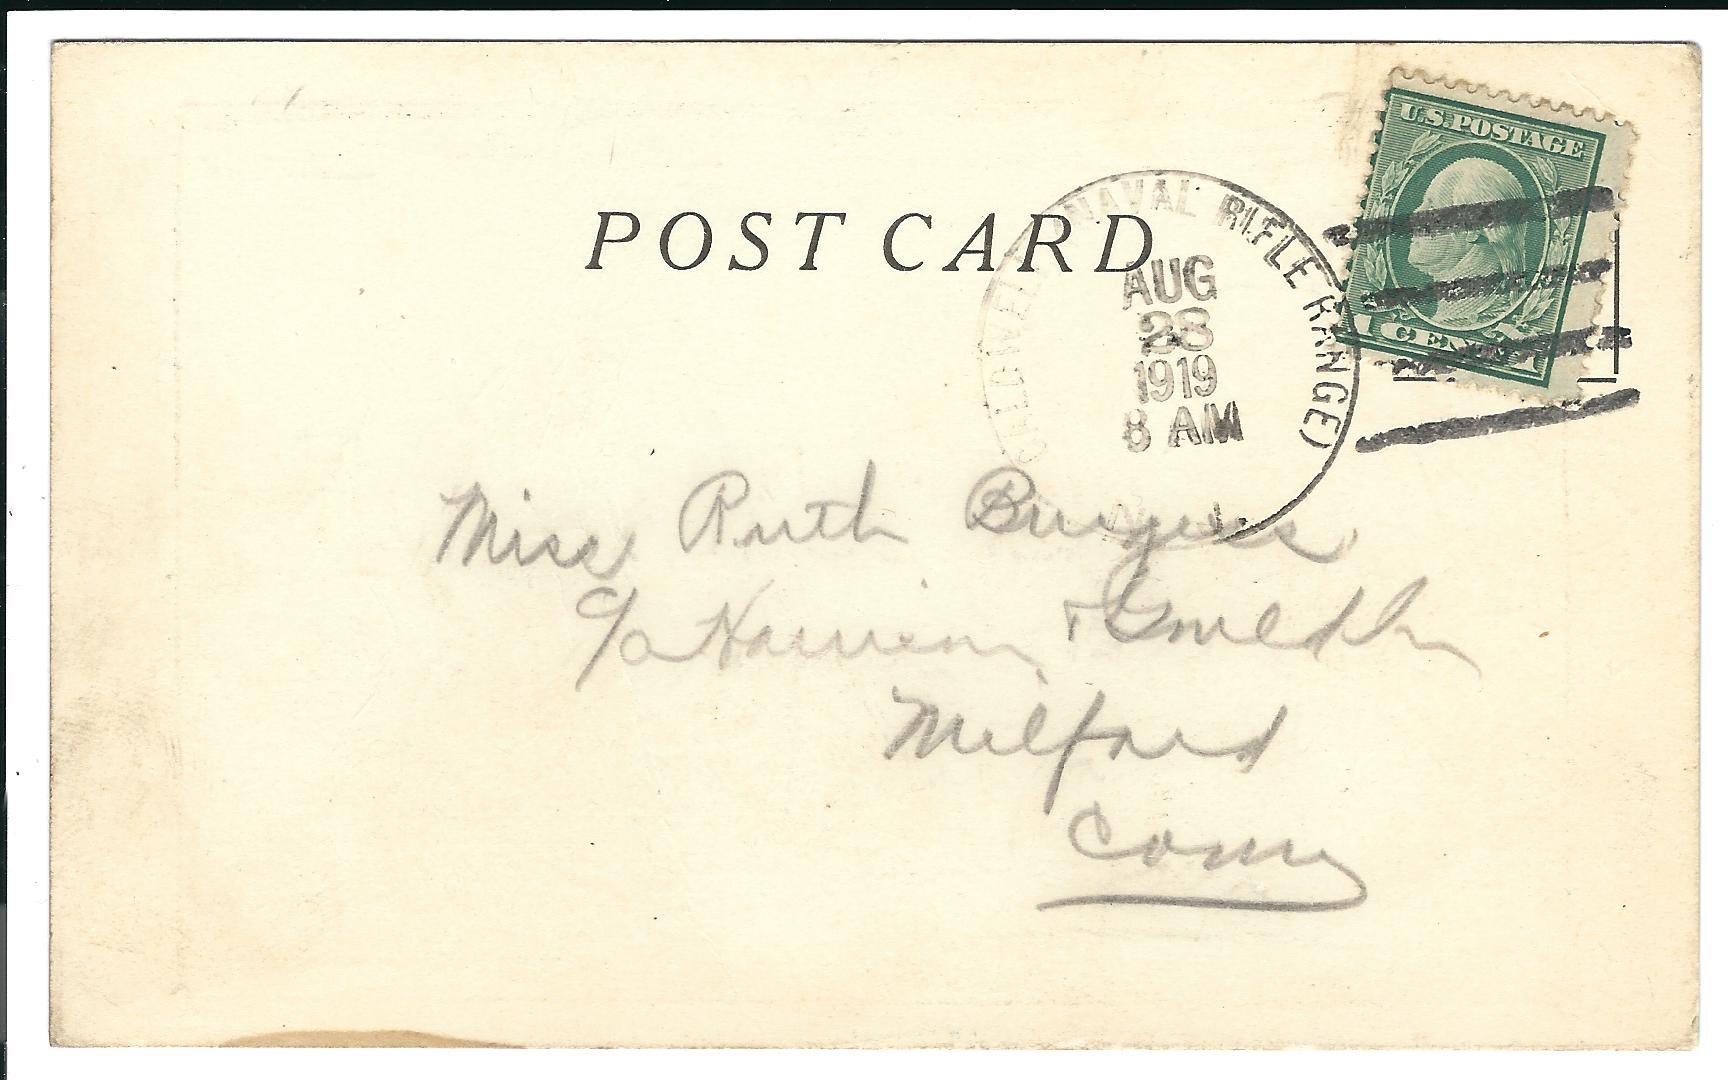 POST CARD
U.S. POSTAGE
1 CENT 1
CALDWELL (NAVAL RIFLE RANGE)
AUG
28
1919
8 AM
N. J.
Miss Ruth Burgess
c/o Harrison & Gould
Milford
Conn